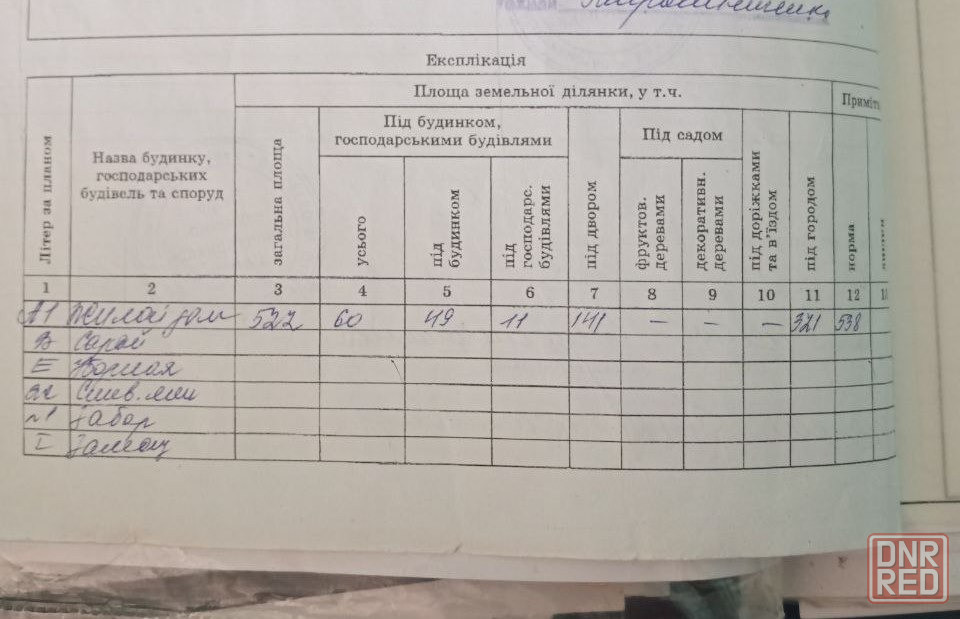 Експлікація
Літер за планом
Назва будинку, господарських будівель та споруд
Площа земельної ділянки, у т.ч.
Приміт
загальна площа
Під будинком, господарськими будівлями
усього
під будинком
під господарс. будівлями
під двором
Під садом
фруктов. деревами
декоративн. деревами
під доріжками та в'їздом
під городом
норма
1 2 3 4 5 6 7 8 9 10 11 12
А1 Жилой дом 522 60 49 11 141 — — — 321 538
Сарай
Е
Забор
I Замощ
DNR
RED